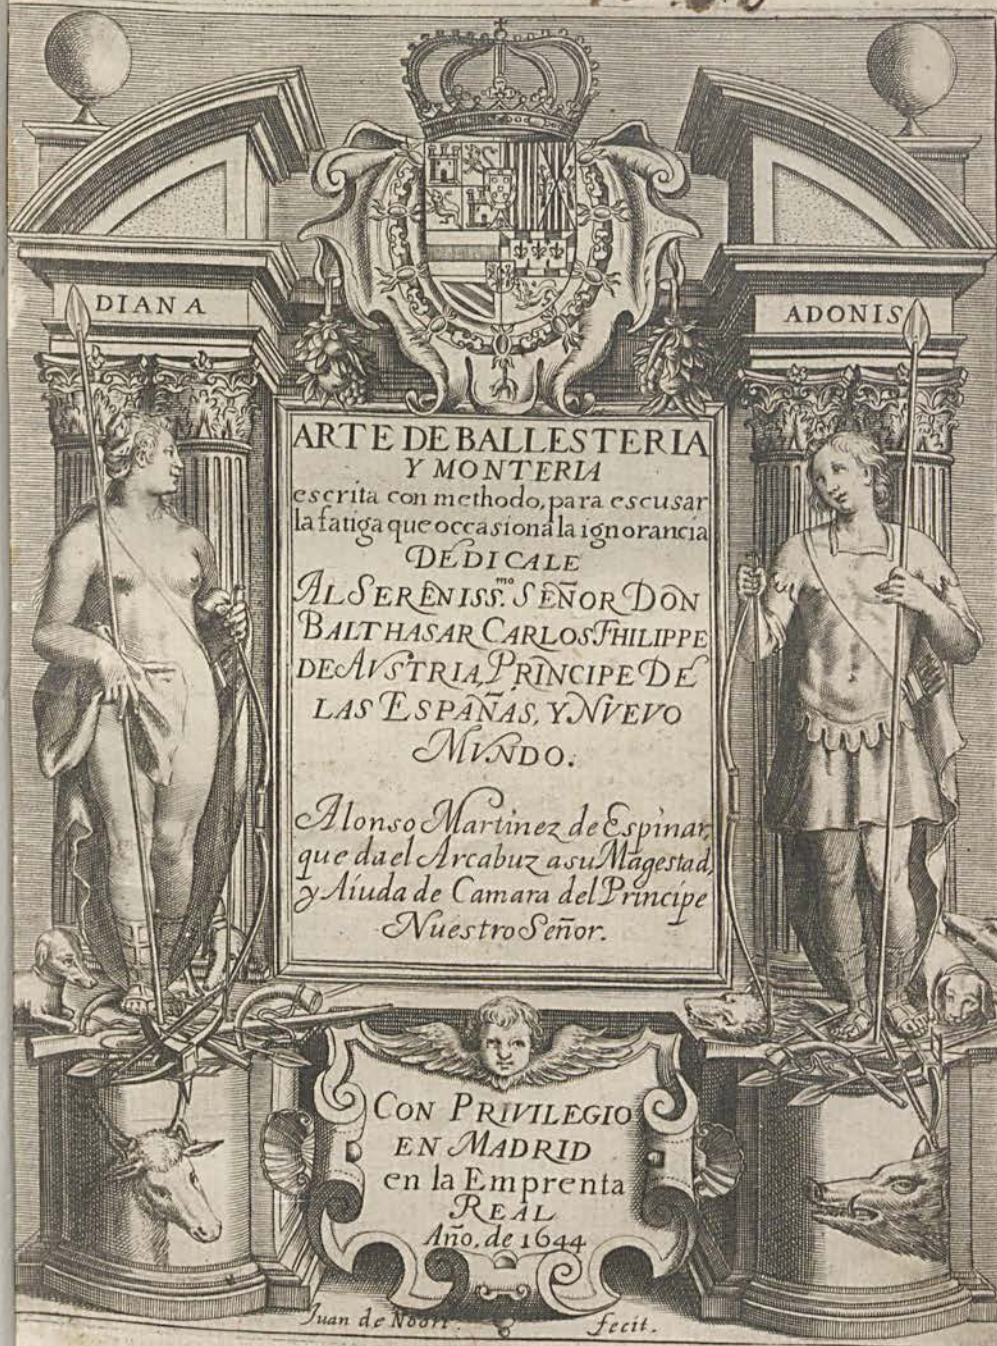 DIANA
ADONIS
ARTE DE BALLESTERIA
Y MONTERIA
escrita con methodo, para escusar
la fatiga que occasiona la ignorancia
DEDICALE
AL SERENISS.mo SEÑOR DON
BALTHASAR CARLOS PHILIPPE
DE AVSTRIA, PRINCIPE DE
LAS ESPAÑAS, Y NVEVO
MVNDO.
Alonso Martinez de Espinar,
que da el Arcabuz a su Magestad,
y Aiuda de Camara del Principe
Nuestro Señor.
CON PRIVILEGIO
EN MADRID
en la Emprenta
REAL
Año, de 1644
Juan de Noort. fecit.